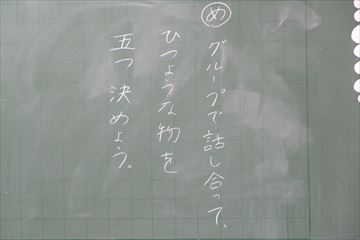 め グループで話し合って、
ひつような物を
五つ 決めよう。